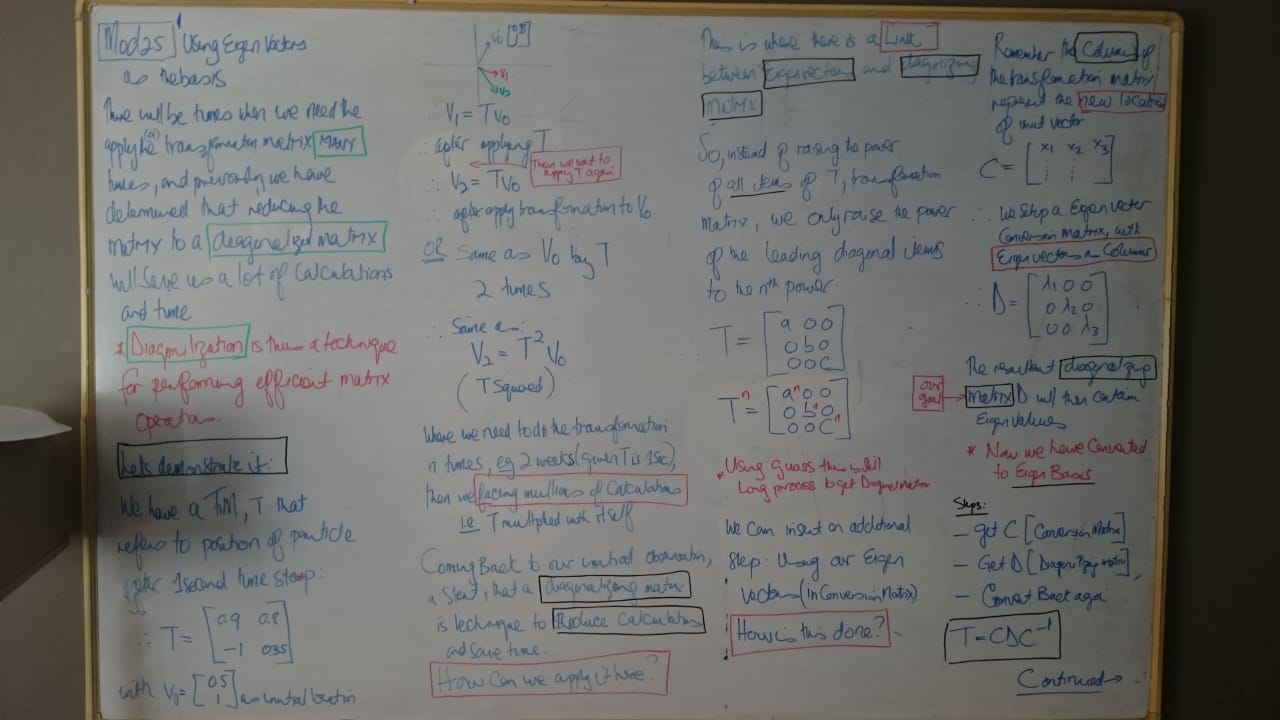 Mod25 Using Eigen Vectors
as the basis
There will be times when we need the
apply the (a) transformation matrix MANY
times, and previously we have
determined that reducing the
matrix to a deagonalized matrix
will save us a lot of calculations
and time
* Diagonilization is thus a technique
for performing efficient matrix
operations.
Lets demonstrate it:
We have a TM, T that
refers to position of particle
after 1 second time stamp:
∴ T = [0.9 0.8
-1 0.35]
with V0 = [0.5
1] as initial location
V0 [0.5
1]
V1
V2
∴ V1 = TV0
∴ after applying T
Then we want to
apply T again
∴ V2 = TV0
∴ after apply transformation to V0
OR Same as V0 by T
2 times
∴ Same as:
V2 = T² V0
(T Squared)
Where we need to do the transformation
n times, eg 2 weeks (given T is 1sec),
then we facing millions of Calculations
i.e T multiplied with itself
Coming Back to our initial observation,
a start, that a diagonalizing matrix
is technique to Reduce Calculations
and save time.
How can we apply it here?
This is where there is a Link
between Eigenvectors and diagonizing
matrix
So, instead of raising the power
of all items of T, transformation
matrix, we only raise the power
of the leading diagonal items
to the nth power.
T = [a 0 0
0 b 0
0 0 c]
Tⁿ = [aⁿ 0 0
0 bⁿ 0
0 0 cⁿ]
* Using guass this is still
long process to get Diagonal matrix
We can insert an additional
step: Using our Eigen
vectors (in Conversion Matrix)
How is this done?
Remember the Columns of
the transformation matrix
represent the new location
of that vector
C = [x1 x2 x3
⋮ ⋮ ⋮]
∴ we setup a Eigen Vector
Conversion matrix, with
Eigenvectors as Columns
∴ D = [λ1 0 0
0 λ2 0
0 0 λ3]
The resultant diagonalizing
our
goal → matrix D will then contain
Eigen Values
* Now we have Converted
to Eigen Basis
Steps:
- get C [Conversion Matrix]
- Get D [Diagonilizing matrix]
- Convert Back again
T = CDC⁻¹
Continued →